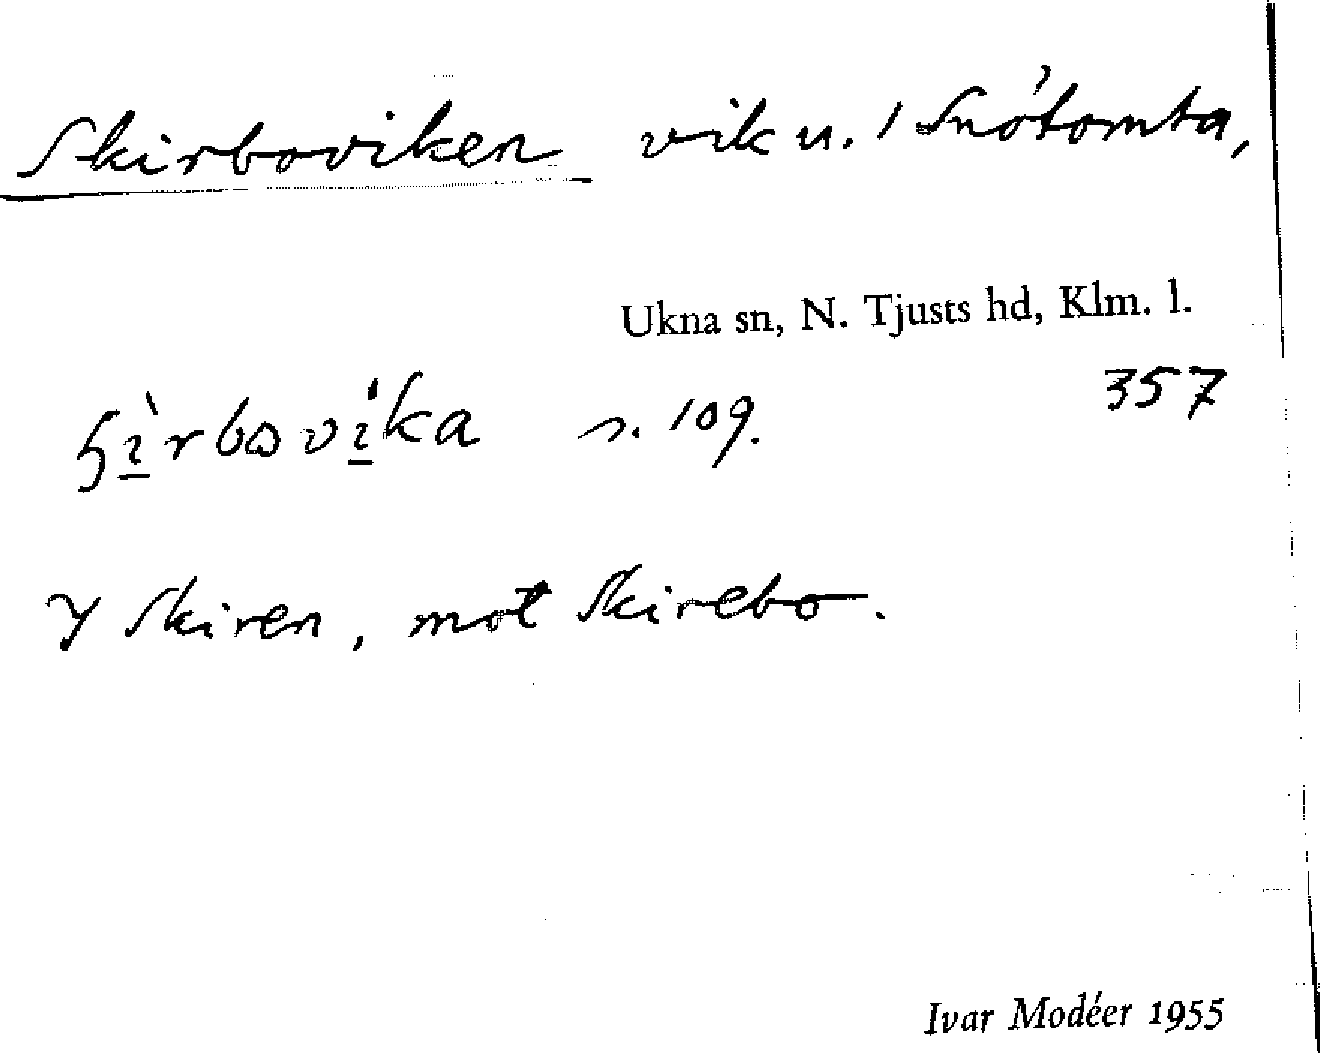 Skirboviken vik u. / Snótomta,
Ukna sn, N. Tjusts hd, Klm. l.
357
s. 109.
I Skiren, mot Skirebo.
Ivar Modéer 1955